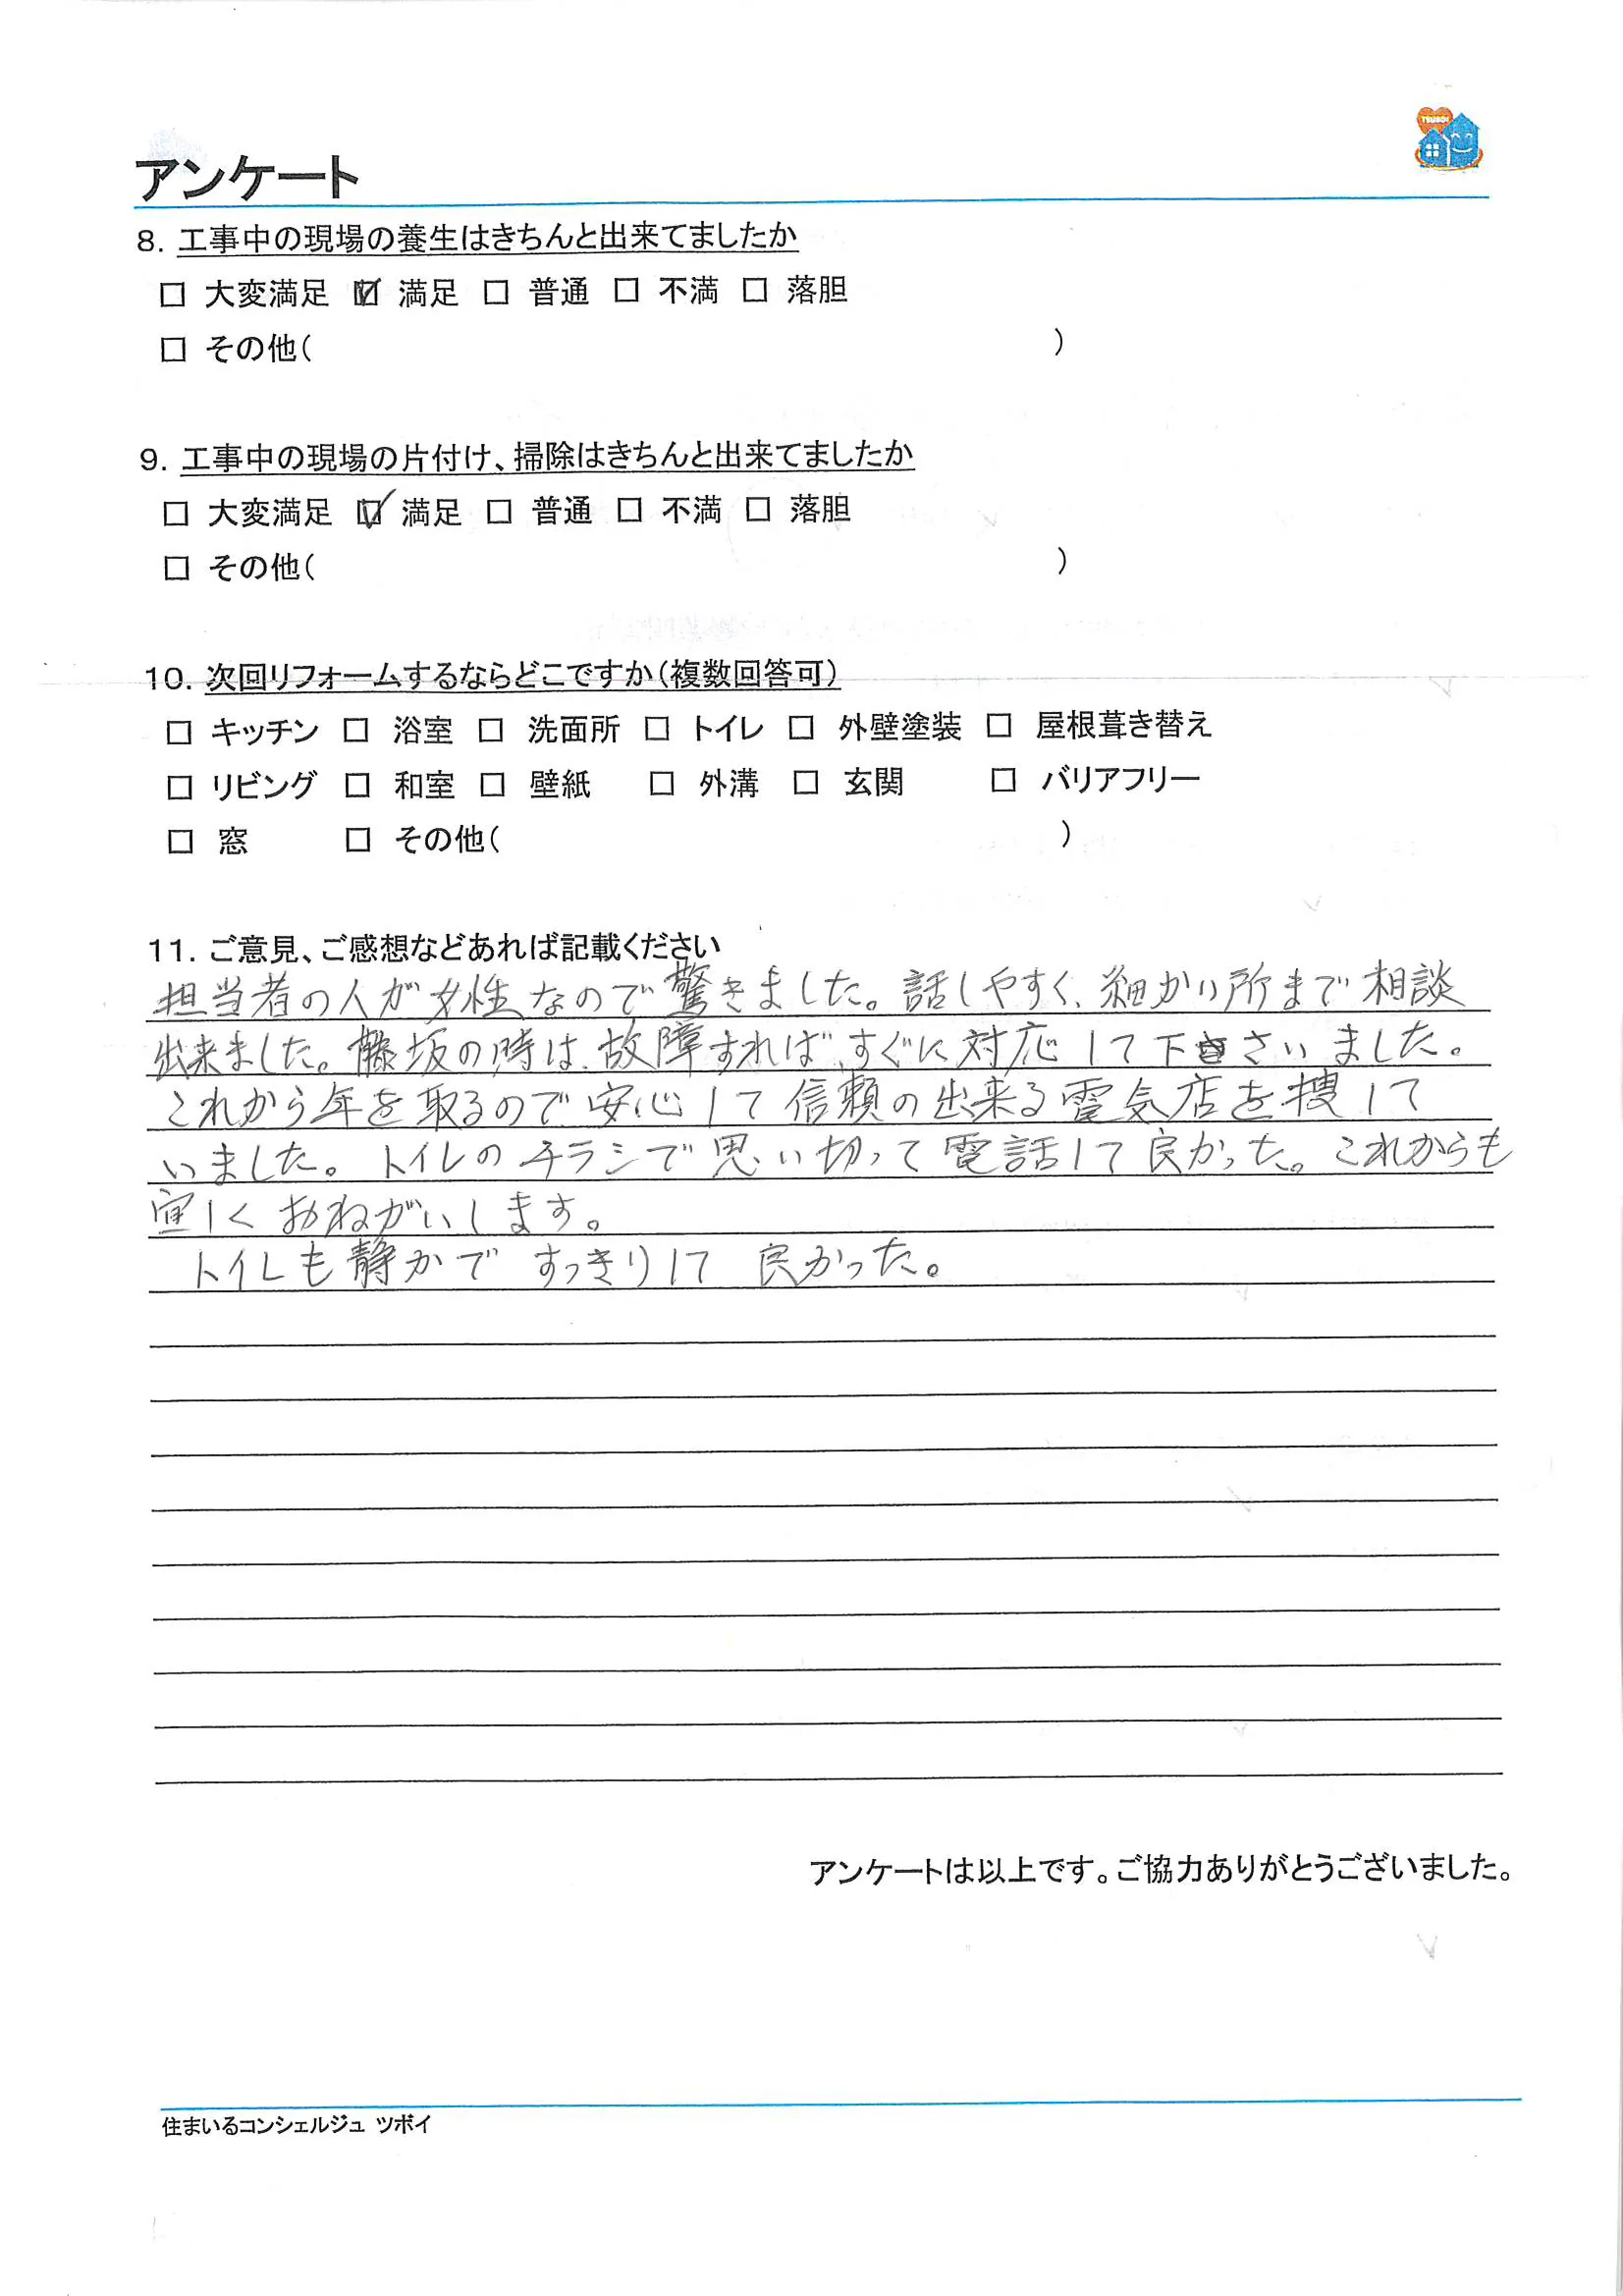 TSUBOI
アンケート
8. 工事中の現場の養生はきちんと出来てましたか
□ 大変満足 ☑ 満足 □ 普通 □ 不満 □ 落胆
□ その他( )
9. 工事中の現場の片付け、掃除はきちんと出来てましたか
□ 大変満足 ☑ 満足 □ 普通 □ 不満 □ 落胆
□ その他( )
10. 次回リフォームするならどこですか(複数回答可)
□ キッチン □ 浴室 □ 洗面所 □ トイレ □ 外壁塗装 □ 屋根葺き替え
□ リビング □ 和室 □ 壁紙 □ 外溝 □ 玄関 □ バリアフリー
□ 窓 □ その他( )
11. ご意見、ご感想などあれば記載ください
担当者の人が女性なので驚きました。話しやすく、細かい所まで相談
出来ました。藤坂の時は、故障すれば、すぐに対応して下さいました。
これから年を取るので安心して信頼の出来る電気店を捜して
いました。トイレのチラシで思い切って電話して良かった。これからも
宜しくおねがいします。
トイレも静かですっきりして良かった。
アンケートは以上です。ご協力ありがとうございました。
住まいるコンシェルジュ ツボイ